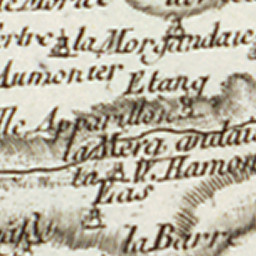 ertre la Morgandaie
Aumonier Etang
Ile Apparillon
la Merg andais
la W. Hamon
Las
la Barre